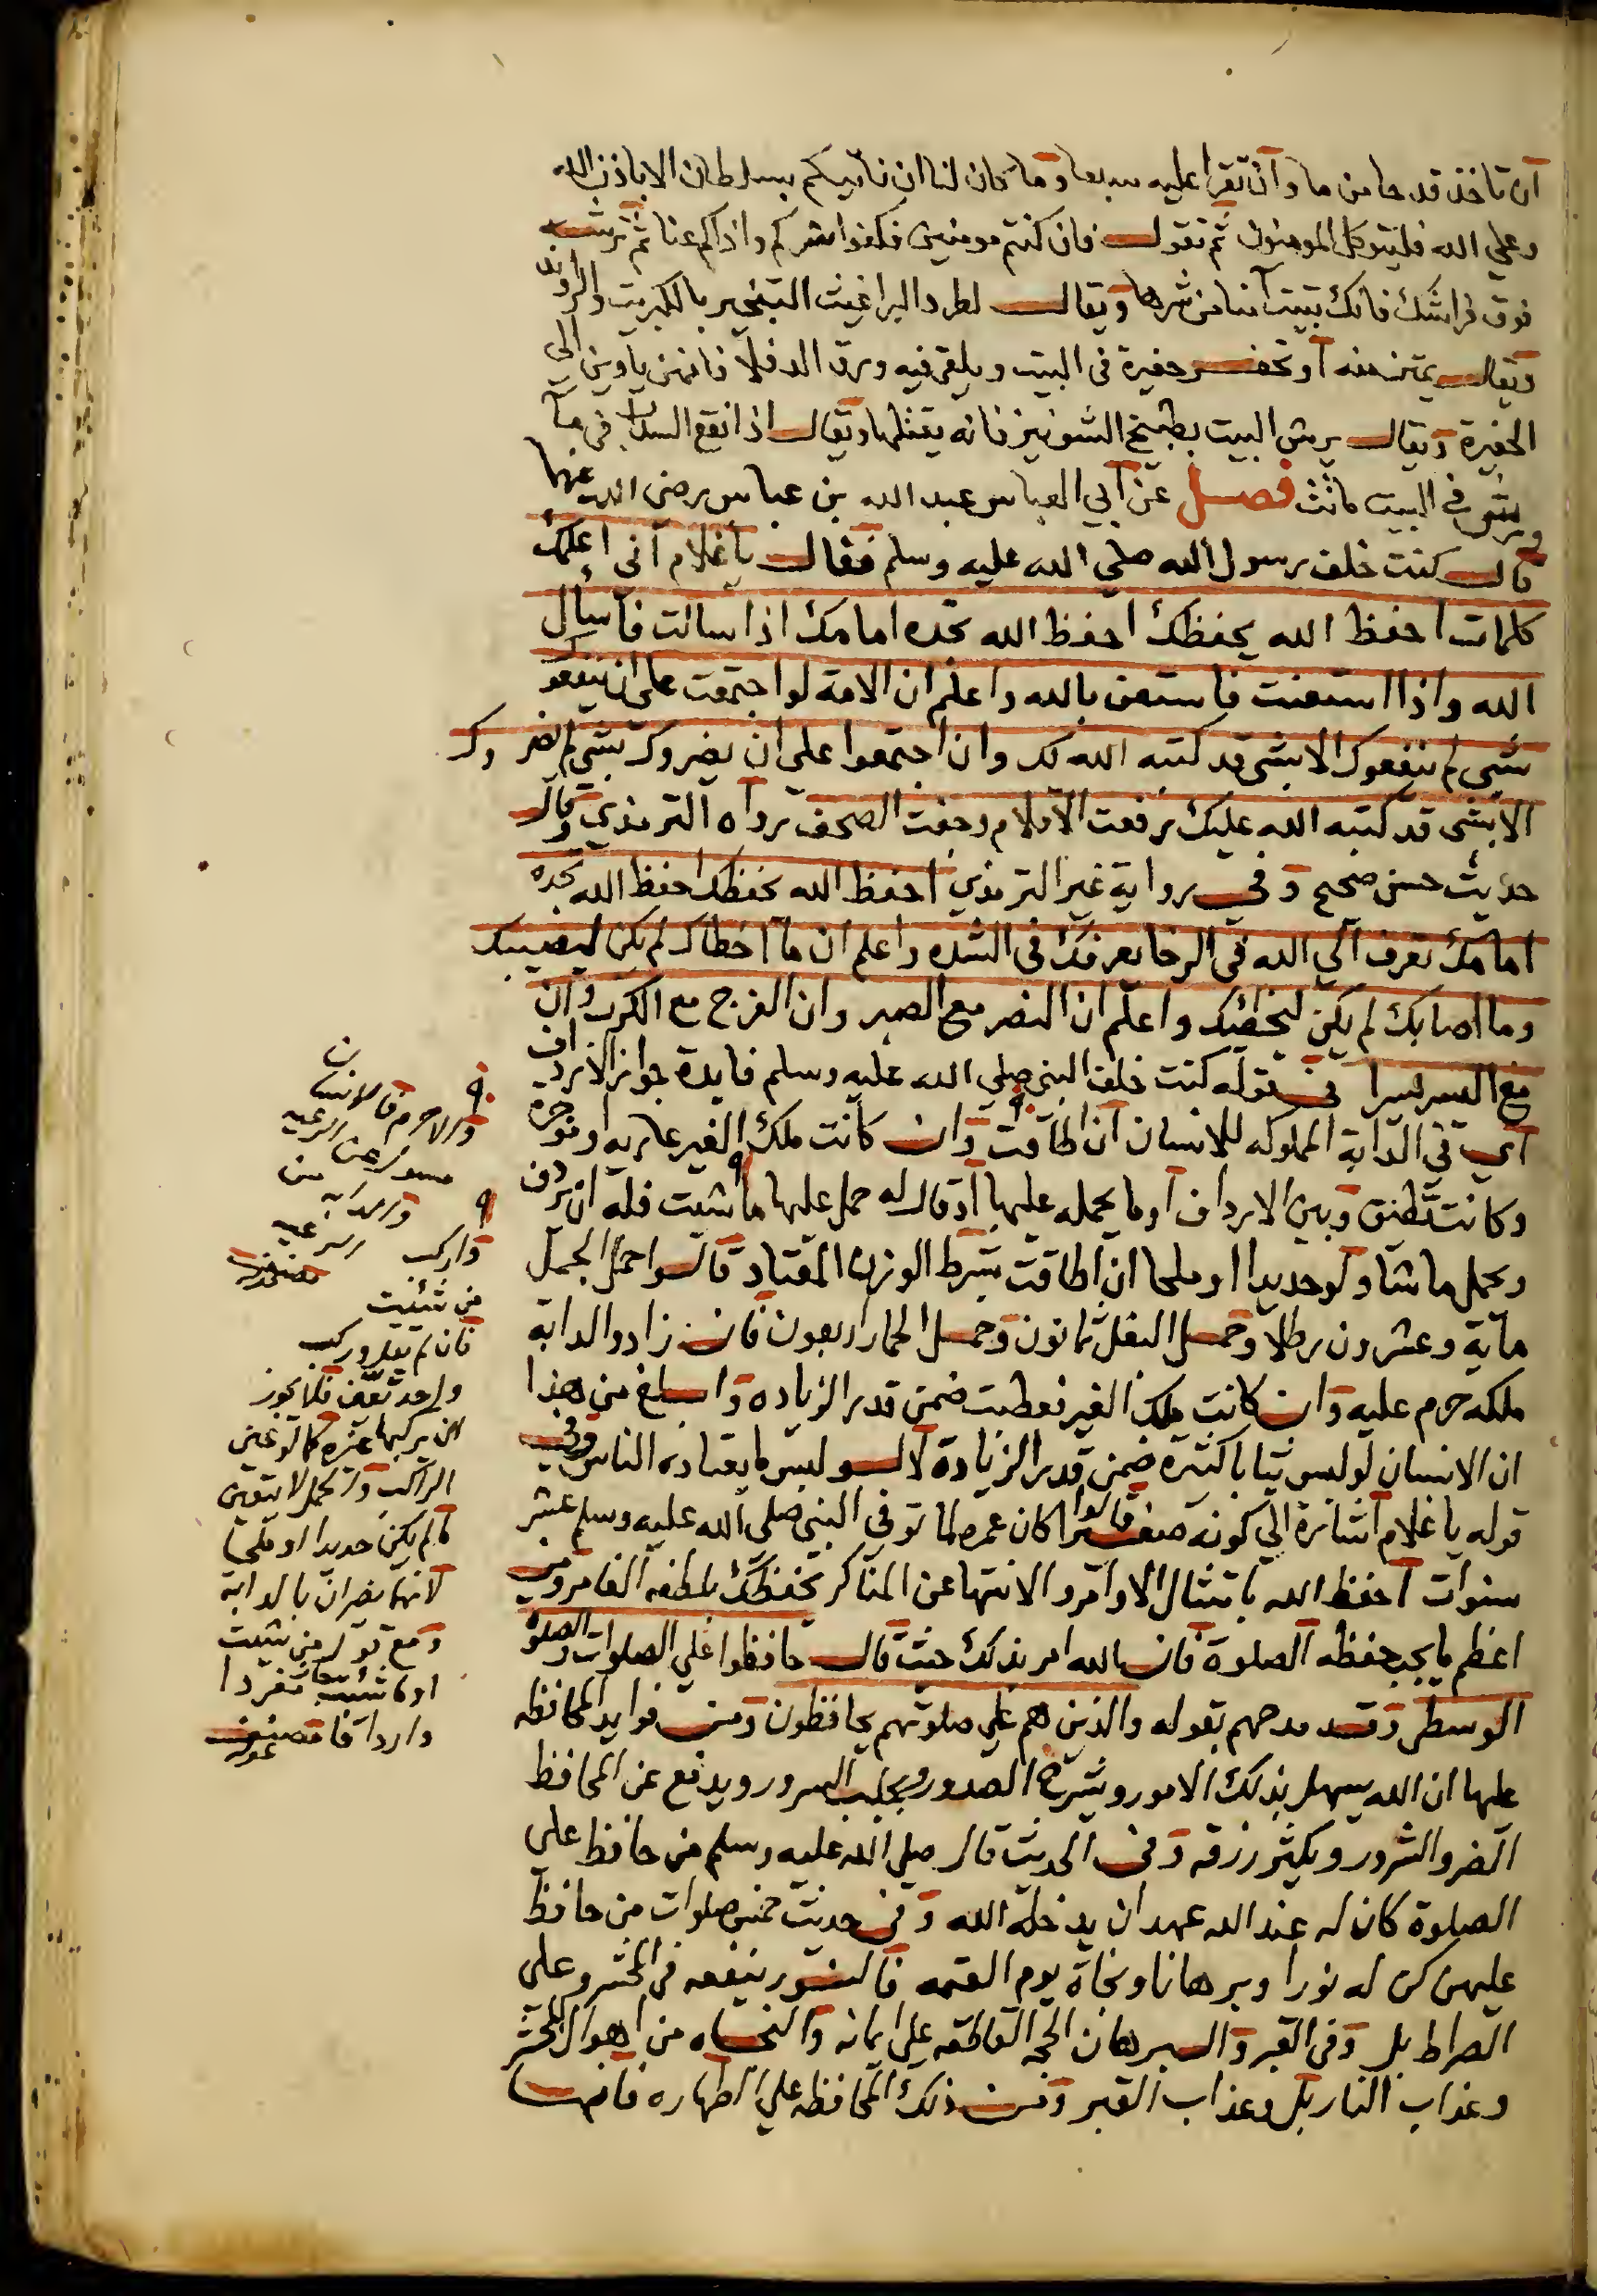 ان تاخذ قدحا من ما وان تقرا عليه سبعا وما كان لنا ان ناتيكم بسلطان الا باذن الله
وعلي الله فليتوكل المومنون ثم تقول فان كنتم مومنين فكفوا شركم واذاكم عنا ثم ترشه
فوق فراشك فانك تبيت آمنا من شرها ويقال لطرد البراغيث التبخير بالكبريت والراوند
ويقال يمتن منه او تحفر حفيرة في البيت ويلقي فيه ورق الدفلا فانهن ياوين الي
الحفيرة ويقال يرش البيت بطبيخ الشونيز فانه يقتلها ويقال اذا انقع السداب في ما
ورش في البيت ماتت فصل عن ابي العباس عبد الله بن عباس رضي الله عنهما
قال كنت خلف رسول الله صلي الله عليه وسلم فقال ياغلام اني اعلمك
كلمات احفظ الله يحفظك احفظ الله تجده امامك اذا سالت فاسال
الله واذا استعنت فاستعن بالله واعلم ان الامة لو اجتمعت علي ان ينفعوك
بشي لم ينفعوك الا بشي قد كتبه الله لك وان اجتمعوا علي ان يضروك بشي لم يضروك
الا بشي قد كتبه الله عليك رفعت الاقلام وجفت الصحف رواه الترمذي وقال
حديث حسن صحيح وفي رواية غير الترمذي احفظ الله يحفظك احفظ الله تجده
امامك تعرف الي الله في الرخا يعرفك في الشده واعلم ان ما اخطاك لم يكن ليصيبك
وما اصابك لم يكن ليخطيك واعلم ان النصر مع الصبر وان الفرج مع الكرب وان
مع العسر يسرا في قوله كنت خلف النبي صلي الله عليه وسلم فايدة جواز الارداف
اي في الدابة المملوكه للانسان ان اطاقت وان كانت ملك الغير عاريه او موجره
وكانت تطيق وبين الارداف او ما يحمله عليها او قال له حمل عليها ما شيت فله ان يردف
ويحمل ما شا ولو حديدا او ملحا ان اطاقت بشرط الوزن المعتاد قالوا حمل الجمل
ماية وعشرون رطلا وحمل البغل ثمانون وحمل الحمار اربعون فان زاد والدابة
ملكه حرم عليه وان كانت ملك الغير فعطبت ضمن قدر الزياده وابلغ من هذا
ان الانسان لو لبس ثيابا كثيرة ضمن قدر الزيادة لا لو لبس ما يعتاده الناس وفي
قوله يا غلام اشارة الي كونه صغيرا قالوا كان عمره لما توفي النبي صلي الله عليه وسلم عشر
سنوات احفظ الله بامتثال الاوامر والانتها عن المناكر يحفظك بلطفه الغامر ومن
اعظم ما يجب حفظه الصلوة فان الله امر بذلك حيث قال حافظوا علي الصلوات والصلوة
الوسطي وقد مدحهم بقوله والذين هم علي صلوتهم يحافظون ومن فوايد المحافظه
عليها ان الله يسهل بذلك الامور ويشرح الصدور ويجلب السرور ويدفع عن المحافظ
الضر والشرور ويكثر رزقه وفي الحديث قال صلي الله عليه وسلم من حافظ علي
الصلوة كان له عند الله عهد ان يدخله الله وفي حديث خمس صلوات من حافظ
عليهن كن له نورا وبرهانا ونجاة يوم القيمه فالنور ينفعه في المحشر وعلي
الصراط بل وفي القبر والبرهان الحجه القاطعه علي ايمانه والنجاه من اهوال المحشر
وعذاب النار بل وعذاب القبر ومن ذلك المحافظه علي الطهاره فانها
والا حرم فالانسان
مسول عن الرعيه
والدابة من
رعيه
واركب
من شئيت
فان لم يقل وركب
واحد تعين فلا يجوز
ان يركبها غيره كما لو عين
الراكب والحمل لا يتعين
ما لم يكن حديدا او ملحا
لانهما يضران بالدابة
ومع قوله من شيت
او ما شيت
واردافا